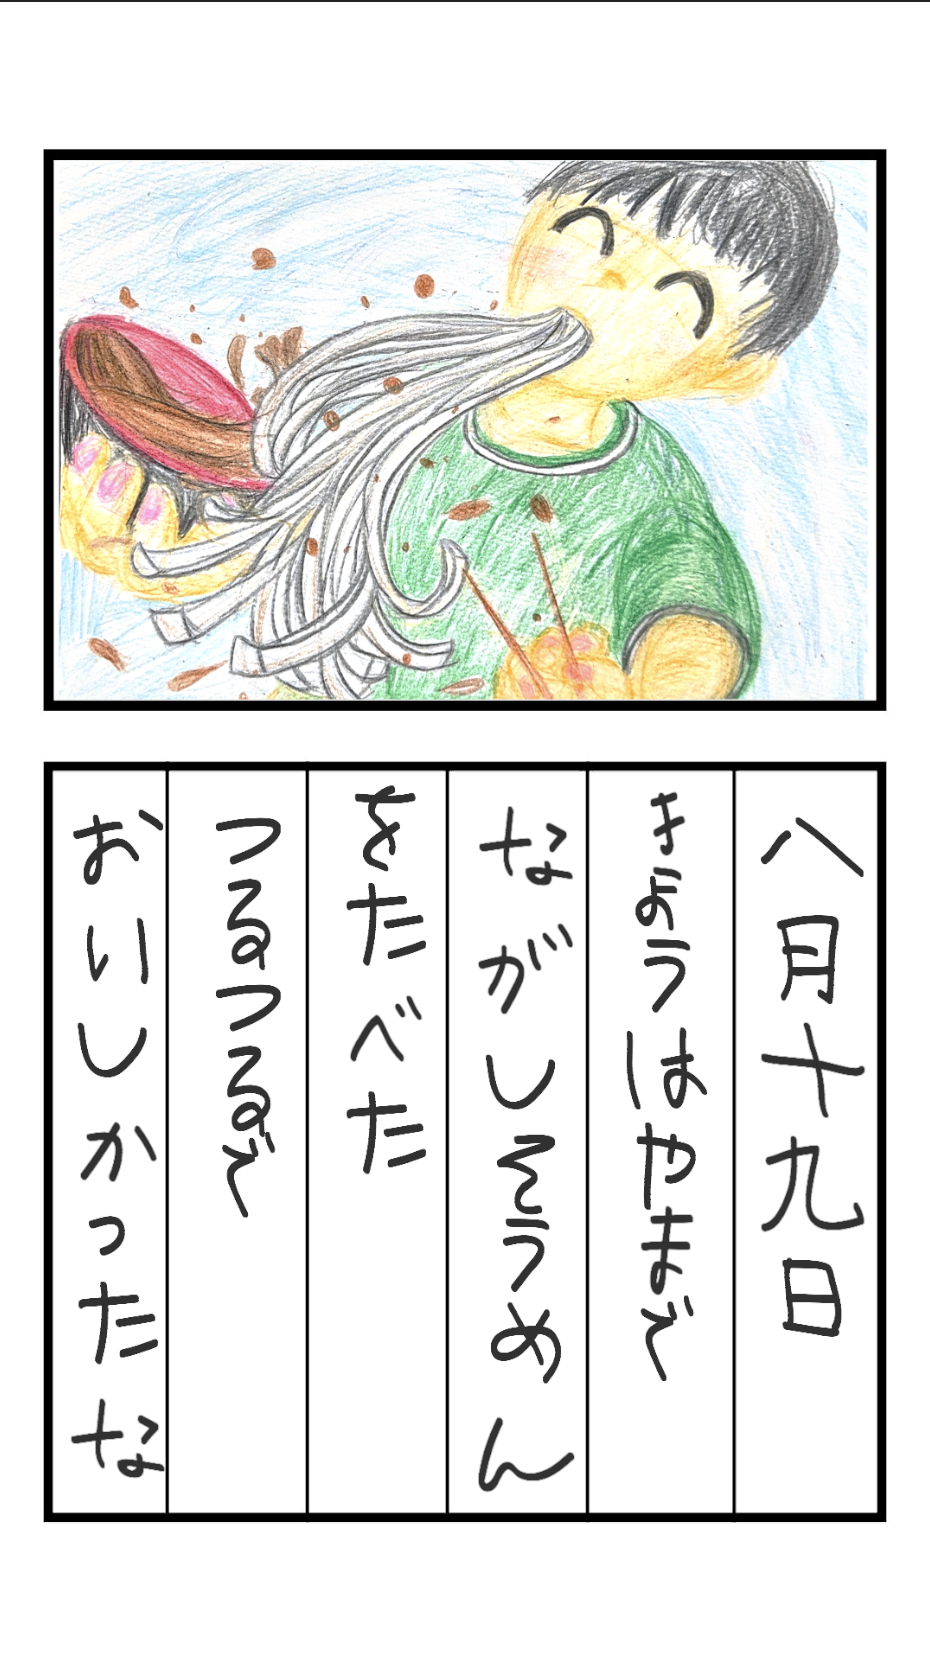 八月十九日
きょうはやまで
ながしそうめん
をたべた
つるつるで
おいしかったな